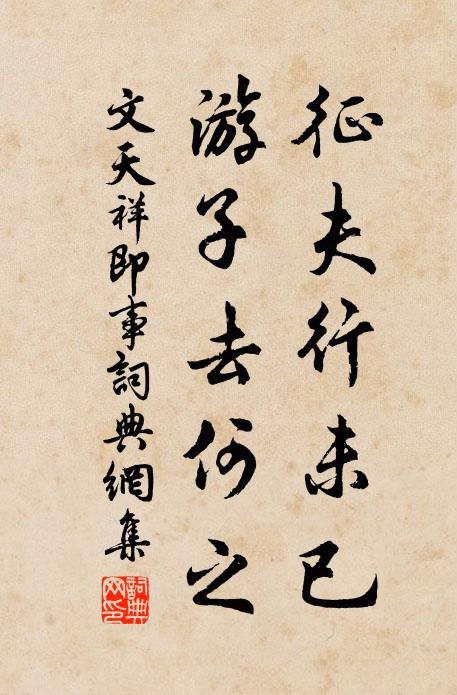 征夫行未已
游子去何之
文天祥即事詞典網集
詞典
网印